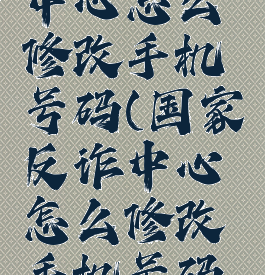 中心怎么
修改手机
号码(国家
反诈中心
怎么修改
手机号码